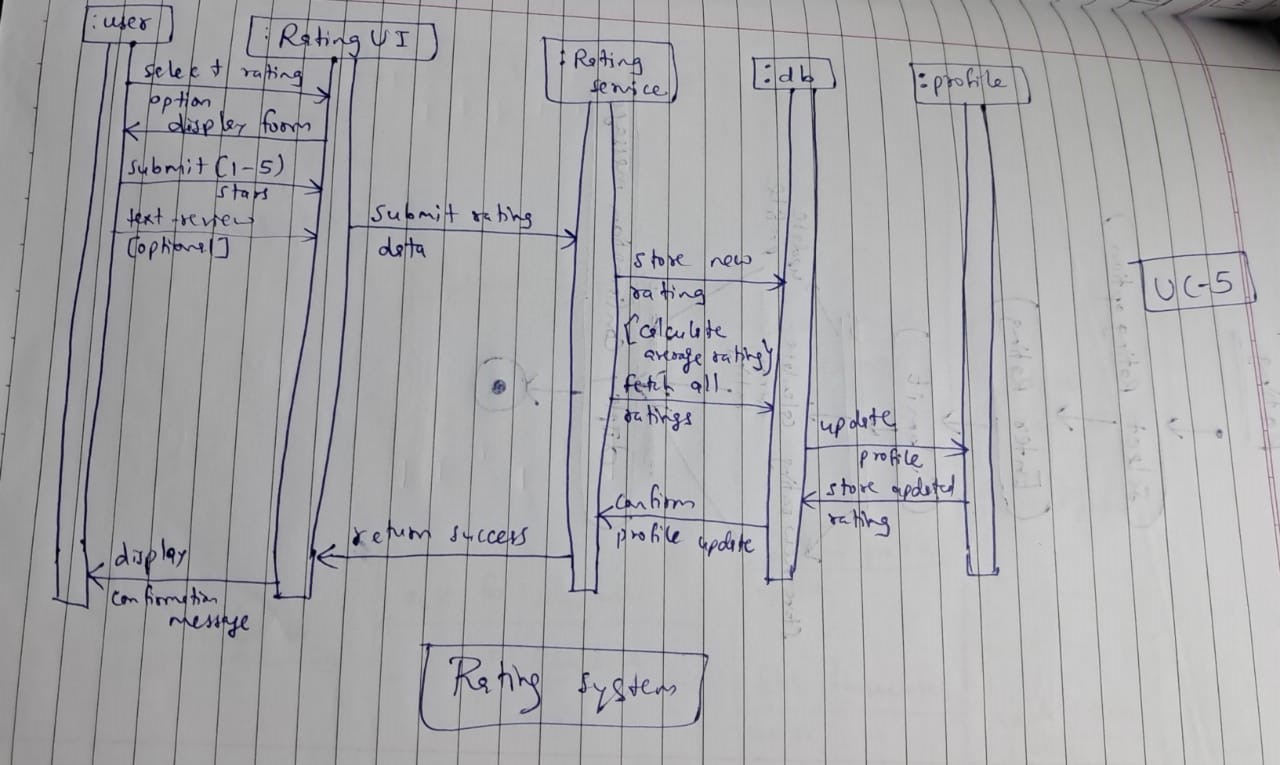 :user
:Rating UI
:Rating
service
:db
:profile
select rating
option
display form
submit (1-5)
stars
text review
[optional]
submit rating
data
store new
rating
{calculate
average rating}
fetch all
ratings
update
profile
store updated
rating
confirm
profile update
return success
display
confirmation
message
UC-5
Rating system